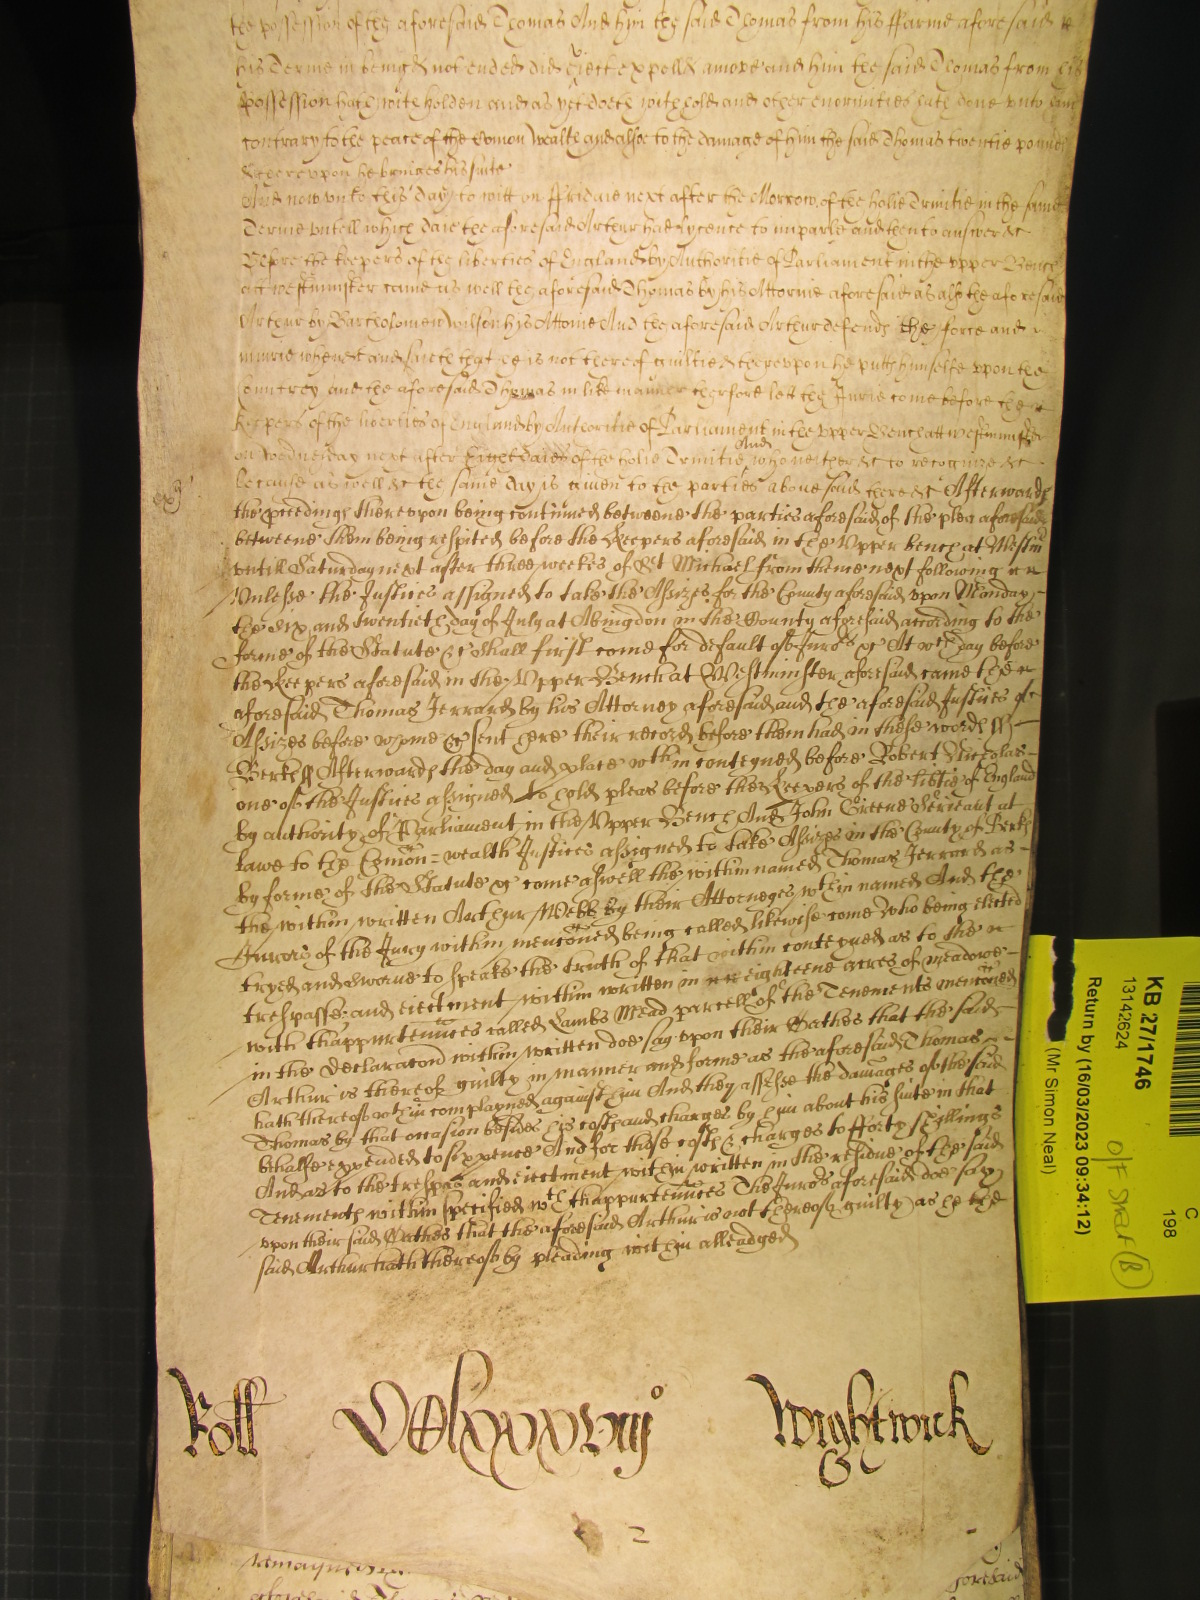 the possession of the aforesaid Thomas And him the said Thomas from his ffarme aforesaid
his Terme in being & not ended did eject expell & amove and him the said Thomas from his
possession hath with holden and as yet doeth withhold and other enormities hath done unto him
contrary to the peace of the Comon Wealth and alsoe to the damage of him the said Thomas twentie pounds
& thereupon he bringes his suite
And now unto this Day to witt on ffridaie next after the Morrow of the holie Trinitie in the same
Terme untill which daie the aforesaid Arthur had lycence to imparle and then to answer &c
Before the keepers of the liberties of England by Authoritie of Parliament in the upper Bench
att Westminster came as well the aforesaid Thomas by his Attorne aforesaid as also the aforesaid
Arthur by Bartholomew Wilson his Attorne And the aforesaid Arthur defends the force and
iniurie when &c and saieth that he is not thereof guiltie & thereupon he putts himselfe upon the
countrey and the aforesaid Thomas in like manner therfore lett the Jurie come before the
keepers of the liberties of England by Authoritie of Parliament in the upper Bench att Westminster
on Wednesday next after Eight daies of the holie Trinitie And who neither &c to recognize &c
because as well &c the same day is given to the parties abovesaid there &c Afterwards
the pceedings thereupon being continued betweene the parties aforesaid of the plea aforesaid
betweene them being respited before the Keepers aforesaid in the Upper bench at Westm
untill Saturday next after three weekes of St Michael from thence next following
Unlesse the Justices assigned to take the Assizes for the County aforesaid upon Monday
the six and twentieth day of July at Abingdon in the County aforesaid according to the
forme of the Statute &c shall first come for default of Juros &c At wch day before
the Keepers aforesaid in the Upper Bench at Westminster aforesaid came the
aforesaid Thomas Jerrard by his Attorney aforesaid and the aforesaid Justices of
Assizes before whome &c sent here their record before them had in these words ss
Berks ss Afterwards the day and place wthin conteyned before Robert Nicholas
one of the Justices assigned to hold pleas before the Keepers of the libties of England
by authority of Parliament in the Upper Bench And John Greene Serieant at
lawe to the Comon=wealth Justices assigned to take Assizes in the County of Berks
by forme of the Statute &c come aswell the within named Thomas Jerrard as
the within written Arthur Webb by their Attorneyes wthin named And the
Jurors of the Jury within menconed being called likewise come who being elected
tryed and sworne to speake the truth of that within conteyned as to the
trespasse and eiectment within written in eighteene acres of meadowe
with thappurtennces called Lambs Mead parcell of the Tenements menconed
in the Declaracon within written doe say upon their Oathes that the said
Arthur is thereof guilty in manner and forme as the aforesaid Thomas
hath thereof wthin complayned against him And they assesse the damages of the said
Thomas by that occasion besides his costs and charges by him about his suite in that
behalfe expended to six pence And for those costs & charges to fforty shillings
And as to the trespas and eiectment within written in the residue of the said
Tenements within specified wth thappurtennces The Juros aforesaid doe say
upon their said Oathes that the aforesaid Arthur is not thereof guilty as he the
said Arthur hath thereof by pleading within alleadged
Roll Wightwick
2
remayne
KB 27/1746
13142624
Return by (16/03/2023 09:34:12)
(Mr Simon Neal)
C
198